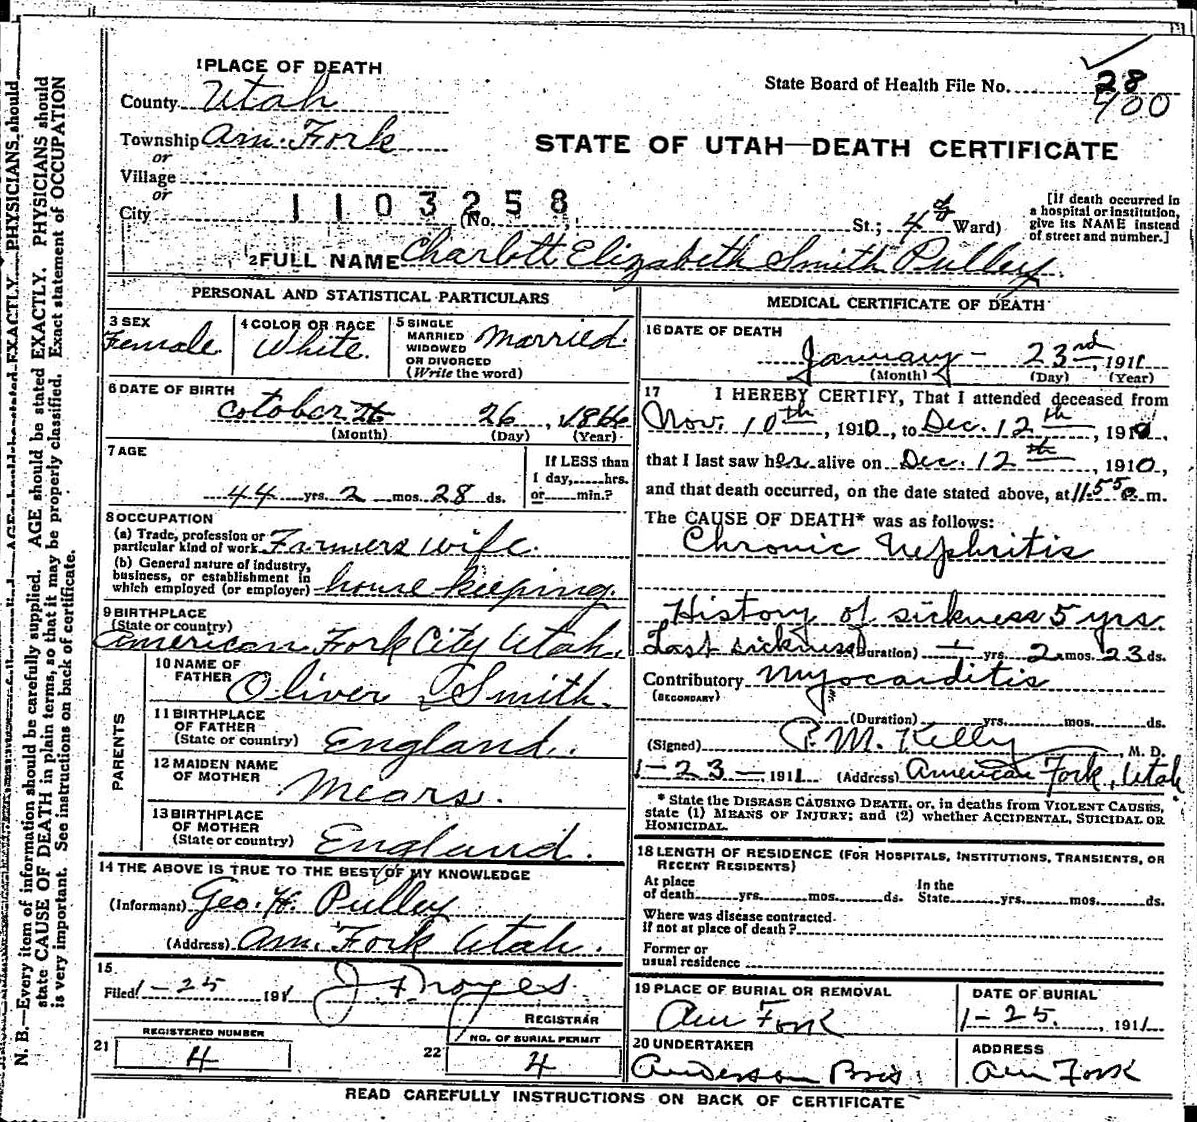 1 PLACE OF DEATH
State Board of Health File No. 28
400
County Utah
Township Am. Fork
STATE OF UTAH—DEATH CERTIFICATE
or
Village
or
City
1103258
(No. St.; 4th Ward)
[If death occurred in
a hospital or institution,
give its NAME instead
of street and number.]
2 FULL NAME Charlott Elizabeth Smith Pulley
PERSONAL AND STATISTICAL PARTICULARS
3 SEX
Female
4 COLOR OR RACE
White
5 SINGLE
MARRIED
WIDOWED
OR DIVORCED
(Write the word)
Married
6 DATE OF BIRTH
October 26 26, 1866
(Month) (Day) (Year)
7 AGE
44 yrs. 2 mos. 28 ds.
If LESS than
1 day,......hrs.
or......min.?
8 OCCUPATION
(a) Trade, profession or
particular kind of work Farmers wife
(b) General nature of industry,
business, or establishment in
which employed (or employer) house keeping
9 BIRTHPLACE
(State or country)
American Fork City Utah.
PARENTS
10 NAME OF
FATHER
Oliver Smith.
11 BIRTHPLACE
OF FATHER
(State or country) England.
12 MAIDEN NAME
OF MOTHER
Mears.
13 BIRTHPLACE
OF MOTHER
(State or country) England.
14 THE ABOVE IS TRUE TO THE BEST OF MY KNOWLEDGE
(Informant) Geo. H. Pulley
(Address) Am. Fork Utah.
15
Filed 1-25 1911
REGISTRAR
REGISTERED NUMBER
21 4
NO. OF BURIAL PERMIT
22 4
MEDICAL CERTIFICATE OF DEATH
16 DATE OF DEATH
January - 23rd, 1911
(Month) (Day) (Year)
17 I HEREBY CERTIFY, That I attended deceased from
Nov. 10th, 1910, to Dec. 12th, 1910,
that I last saw her alive on Dec. 12th, 1910,
and that death occurred, on the date stated above, at 11.55 m.
The CAUSE OF DEATH* was as follows:
Chronic Nephritis
History of sickness 5 yrs.
Last sickness (Duration) yrs. 2 mos. 23 ds.
Contributory Myocarditis
(SECONDARY)
(Duration) yrs. mos. ds.
(Signed) P. M. Kelly, M. D.
1-23-1911 (Address) American Fork, Utah
* State the DISEASE CAUSING DEATH, or, in deaths from VIOLENT CAUSES,
state (1) MEANS OF INJURY; and (2) whether ACCIDENTAL, SUICIDAL OR
HOMICIDAL.
18 LENGTH OF RESIDENCE (FOR HOSPITALS, INSTITUTIONS, TRANSIENTS, OR
RECENT RESIDENTS)
At place
of death yrs. mos. ds.
In the
State yrs. mos. ds.
Where was disease contracted
if not at place of death?
Former or
usual residence
19 PLACE OF BURIAL OR REMOVAL
Am Fork
DATE OF BURIAL
1-25, 1911
20 UNDERTAKER
Anderson Bros.
ADDRESS
Am Fork
READ CAREFULLY INSTRUCTIONS ON BACK OF CERTIFICATE
N. B.—Every item of information should be carefully supplied. AGE should be stated EXACTLY. PHYSICIANS should
state CAUSE OF DEATH in plain terms, so that it may be properly classified. Exact statement of OCCUPATION
is very important. See instructions on back of certificate.